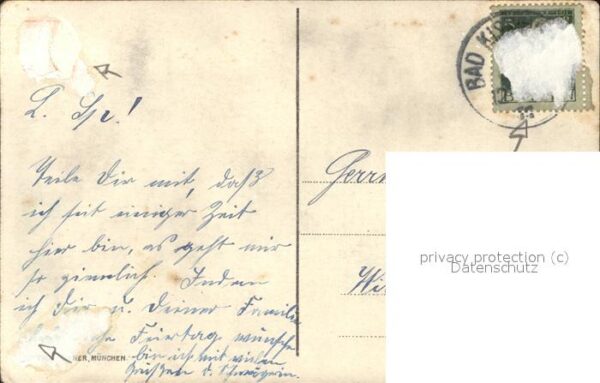 BAD KISS
L. Sp!
Teile Dir mit, daß
ich seit einiger Zeit
hier bin, es geht mir
so ziemlich. Indem
ich Dir u. Deiner Familie
Feiertag wünsche
bin ich mit vielen
Grüßen d. Schwägerin.
NER, MÜNCHEN.
Herrn
Wi
privacy protection (c)
Datenschutz